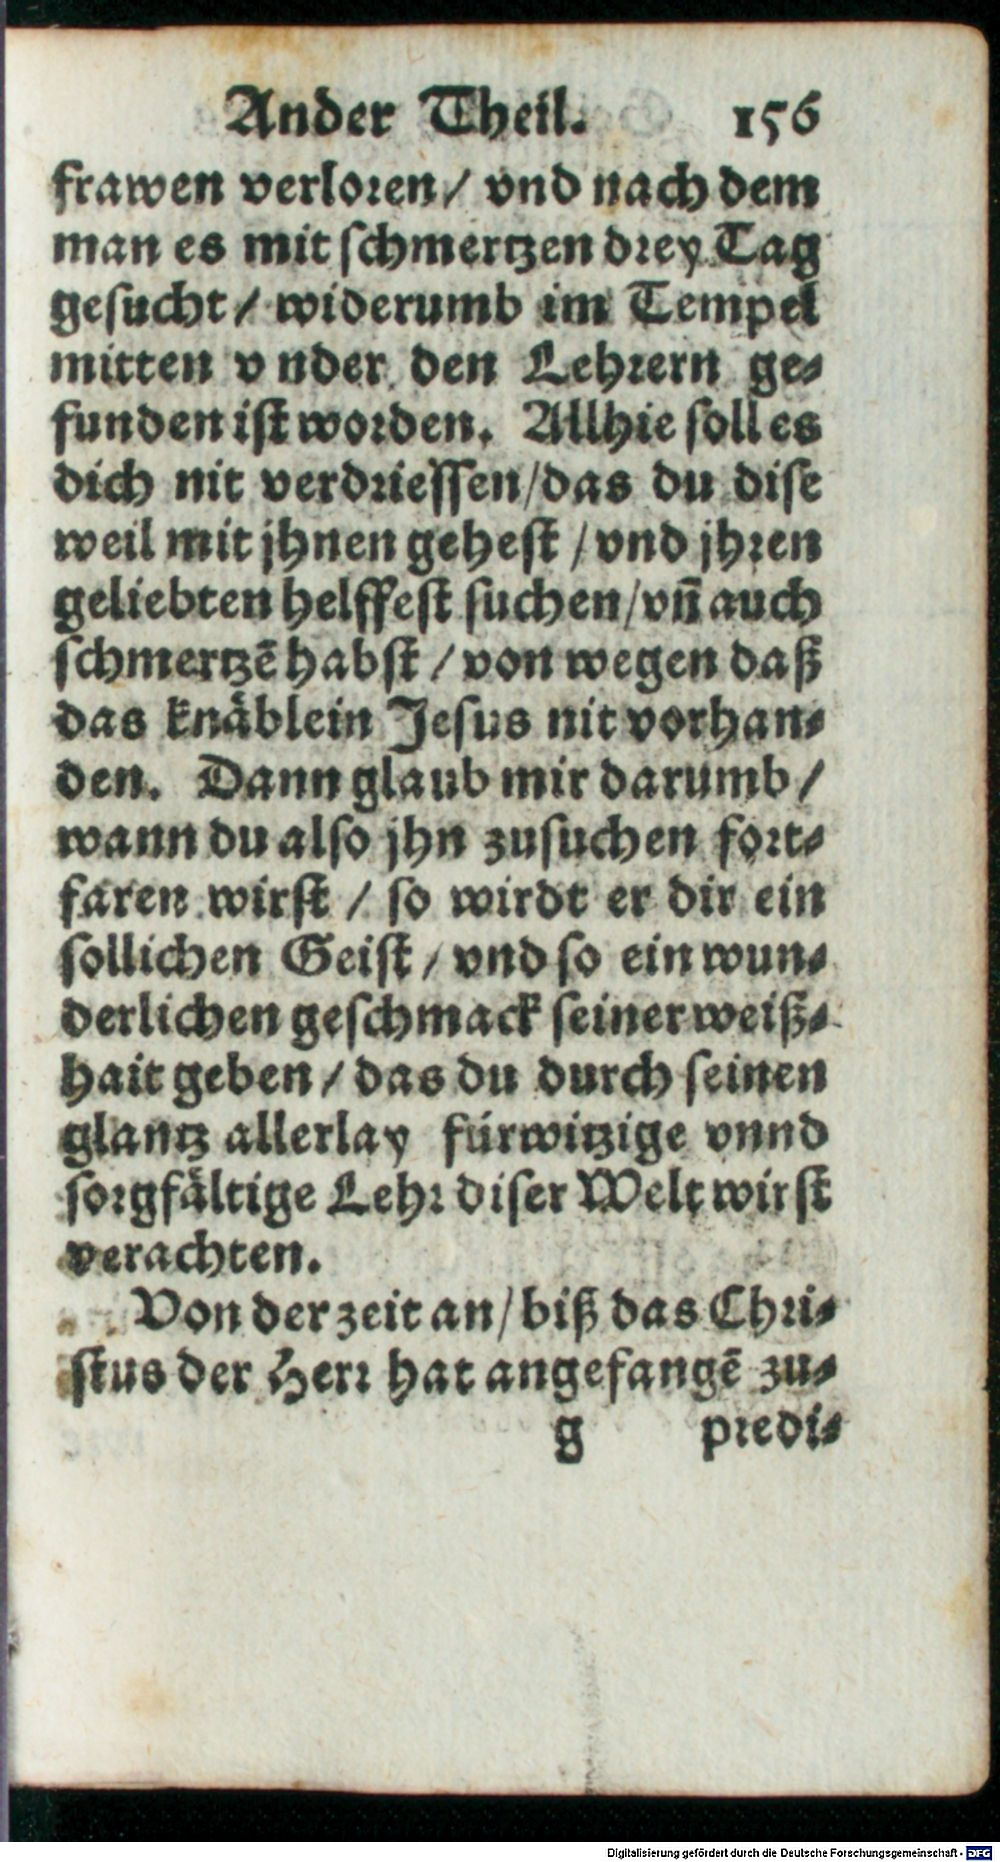 Ander Theil. 156
frawen verloren/ vnd nach dem
man es mit schmertzen drey Tag
gesucht/ widerumb im Tempel
mitten vnder den Lehrern ge-
funden ist worden. Allhie soll es
dich nit verdriessen/das du dise
weil mit jhnen gehest/vnd jhren
geliebten helffest suchen/vñ auch
schmertzẽ habst/von wegen daß
das knäblein Jesus nit vorhan-
den. Dann glaub mir darumb/
wann du also jhn zusuchen fort-
faren wirst/ so wirdt er dir ein
sollichen Geist/ vnd so ein wun-
derlichen geschmack seiner weiß-
hait geben/das du durch seinen
glantz allerlay fürwitzige vnnd
sorgfältige Lehr diser Welt wirst
verachten.
Von der zeit an/biß das Chri-
stus der Herr hat angefangẽ zu-
g predi-
Digitalisierung gefördert durch die Deutsche Forschungsgemeinschaft - DFG